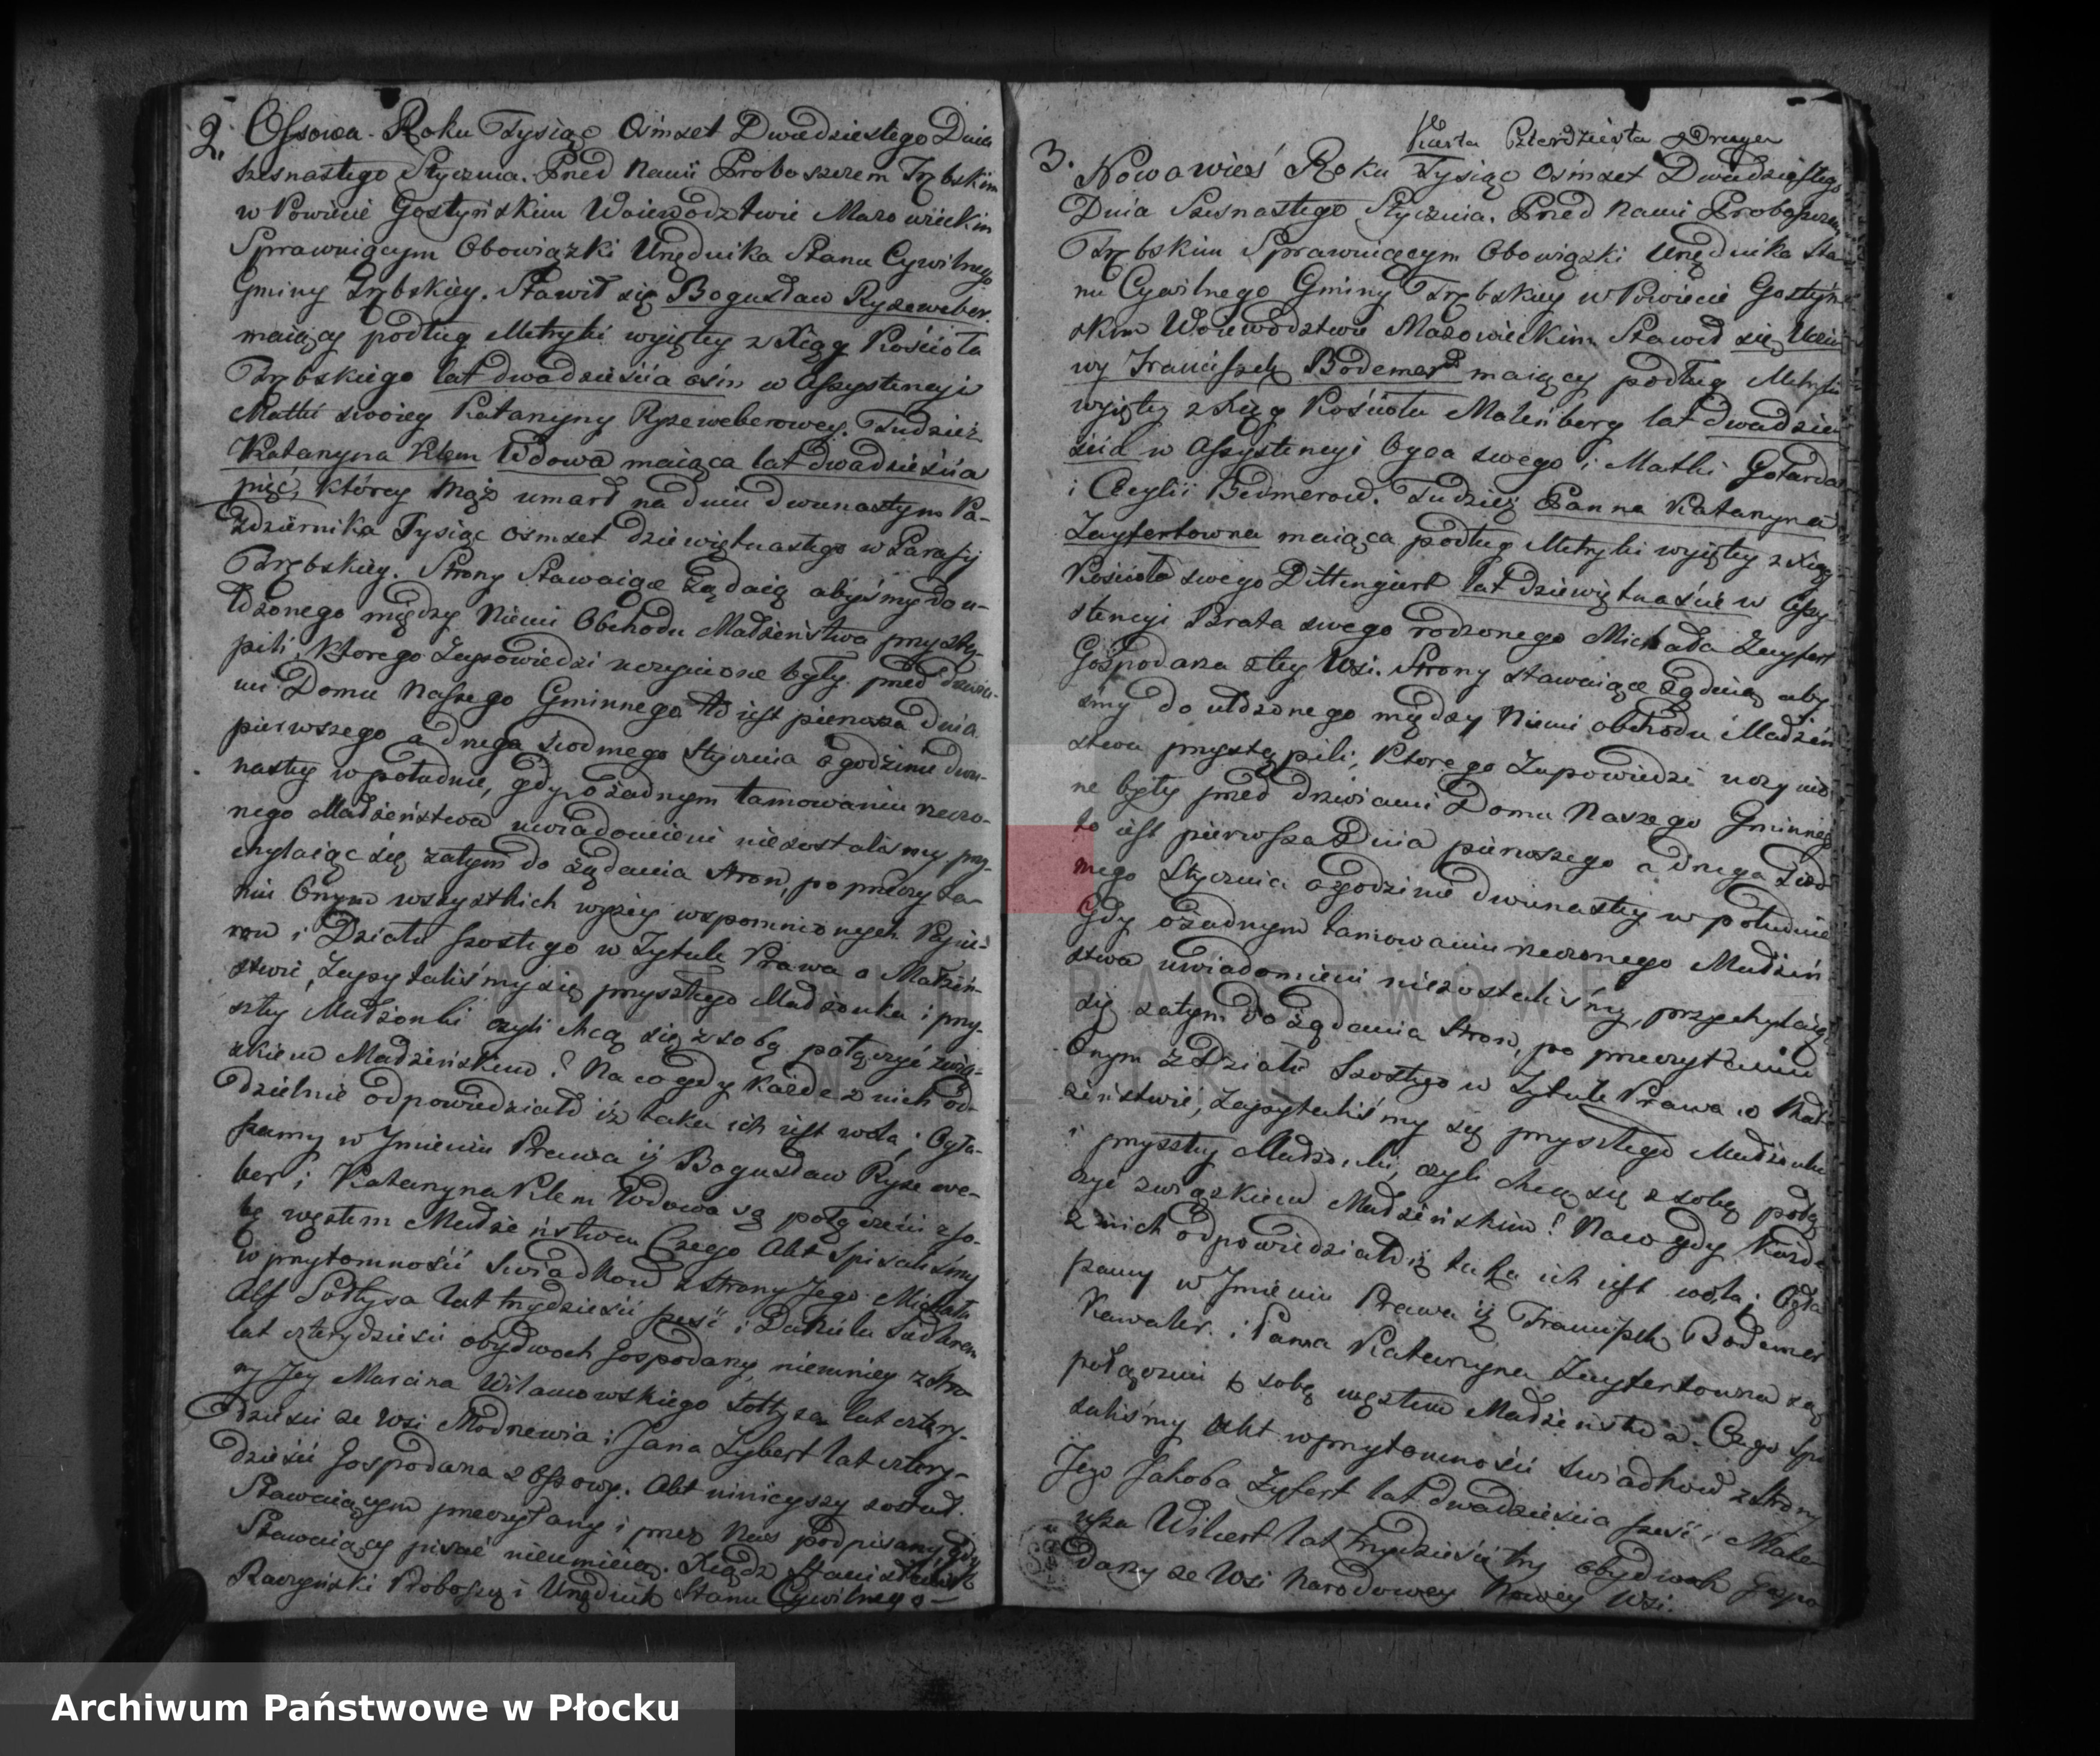 2. Ossowa. Roku Tysiąc Ośmset Dwudziestego Dnia
szesnastego Stycznia. Przed Nami Proboszczem Trębskim
w Powiecie Gostyńskim Woiewodztwie Mazowieckim
Sprawuiącym Obowiązki Urzędnika Stanu Cywilnego
Gminy Trębskiey. Stawił się Bogusław Ryzeweber.
maiący podług Metryki wyiętey z Xiąg Kościoła
Trębskiego lat dwadzieścia ośm w Assystencyi
Matki swoiey Katarzyny Ryzeweberowey. Tudzież
Katarzyna Klem Wdowa maiąca lat dwadzieścia
pięć, którey Mąż umarł na dniu dwunastym Pa-
zdziernika Tysiąc ośmset dziewiętnastego w Parafij
Trębskiey. Strony Stawaiące żądaią abyśmy do u-
łożonego między Niemi Obchodu Małżeństwa przystą-
pili, ktorego Zapowiedzi uczynione były przed drzwia-
mi Domu Naszego Gminnego to iest pierwsza dnia
pierwszego a druga siodmego Stycznia o godzinie dwu-
nastey w południe, gdy o żadnym tamowaniu rzeczo-
nego Małżeństwa uwiadomieni niezostaliśmy, przy-
chylaiąc się zatym do żądania stron, po przeczyta-
niu Onym wszystkich wyżey wspomnionych Papie-
row i Działu szostego w Tytule Prawa o Małżeń-
stwie, Zapytaliśmy się przyszłego Małżonka i przy-
szłey Małżonki czyli chcą się z sobą połączyć zwią-
zkiem Małżeńskim? Na co gdy każde z nich od-
dzielnie odpowiedziało iż taka ich iest wola; Ogła-
szamy w Imieniu Prawa iż Bogusław Ryzewe-
ber i Katarzyna Klem Wdowa są połączeni z so-
bą węzłem Małżeństwa Czego Akt Spisaliśmy
w przytomności Swiadkow z strony Jego Michała
Alf Sołtysa lat trzydzieści sześć i Daniela
lat czterydzieści obydwoch Gospodarzy, niemniey z stro-
ny Jey Marcina Wilamowskiego Sołtysa lat cztery-
dzieści ze Wsi Modrzewia i Jana Zybert lat cztery-
dzieści Gospodarza z Ossowy. Akt ninieyszy został
Stawaiącym przeczytany i przez Nas podpisany, gdy
Stawaiący pisać nieumieią. Xiądz Stanisław
Raczyński Proboszcz i Urzędnik Stanu Cywilnego—
Karta Czterdziesta Druga
3. Nowawieś Roku Tysiąc Ośmset Dwudziestego
Dnia Szesnastego Stycznia. Przed Nami Proboszczem
Trębskim Sprawuiącym Obowiązki Urzędnika Sta
nu Cywilnego Gminy Trębskiey w Powiecie Gostyń
skim Woiewodztwie Mazowieckim Stawił się Uczci
wy Franciszek Bodemer maiący podług Metryki
wyiętey z Xiąg Kościoła Malenberg lat dwadzie
ścia w Assystencyi Oyca swego i Matki Gotarda
i Cecylii Bedmerow. Tudzież Panna Katarzyna
Zayfertowna maiąca podług Metryki wyiętey z Xiąg
Kościoła swego Dittengiert lat dziewiętnaście w Assy
stencyi Brata swego rodzonego Michała Zayfert
Gospodarza z tey Wsi. Strony stawaiące żądaią aby
śmy do ułożonego między Niemi obchodu Małżeń
stwa przystąpili, ktorego Zapowiedzi uczynio
ne były przed drzwiami Domu Naszego Gminnego
to iest pierwsza Dnia pierwszego a druga Siod
mego Stycznia o godzinie dwunastey w południe
Gdy o żadnym tamowaniu rzeczonego Małżeń
stwa uwiadomieni niezostaliśmy, przychylaiąc
się zatym do żądania stron, po przeczytaniu
Onym z Działu Szostego w Tytule Prawa o Mał
żeństwie, Zapytaliśmy się przyszłego Małżonka
i przyszłey Małżonki, czyli chcą się z sobą połą
czyć związkiem Małżeńskim? Na co gdy każde
z nich odpowiedziało iż taka ich iest wola; Ogła
szamy w Imieniu Prawa iż Franciszek Bodemer
Kawaler i Panna Katarzyna Zayfertowna są
połączeni z sobą węzłem Małżeństwa. Czego Spi
saliśmy Akt w przytomności Swiadkow z Strony
Jego Jakoba Zyfert lat dwadzieścia sześć i Mate
usza Wibert lat trzydzieści trzy obydwoch Gospo
darzy ze Wsi Narodowey Nowey Wsi.
ARCHIWUM PAŃSTWOWE
W PŁOCKU
Archiwum Państwowe w Płocku